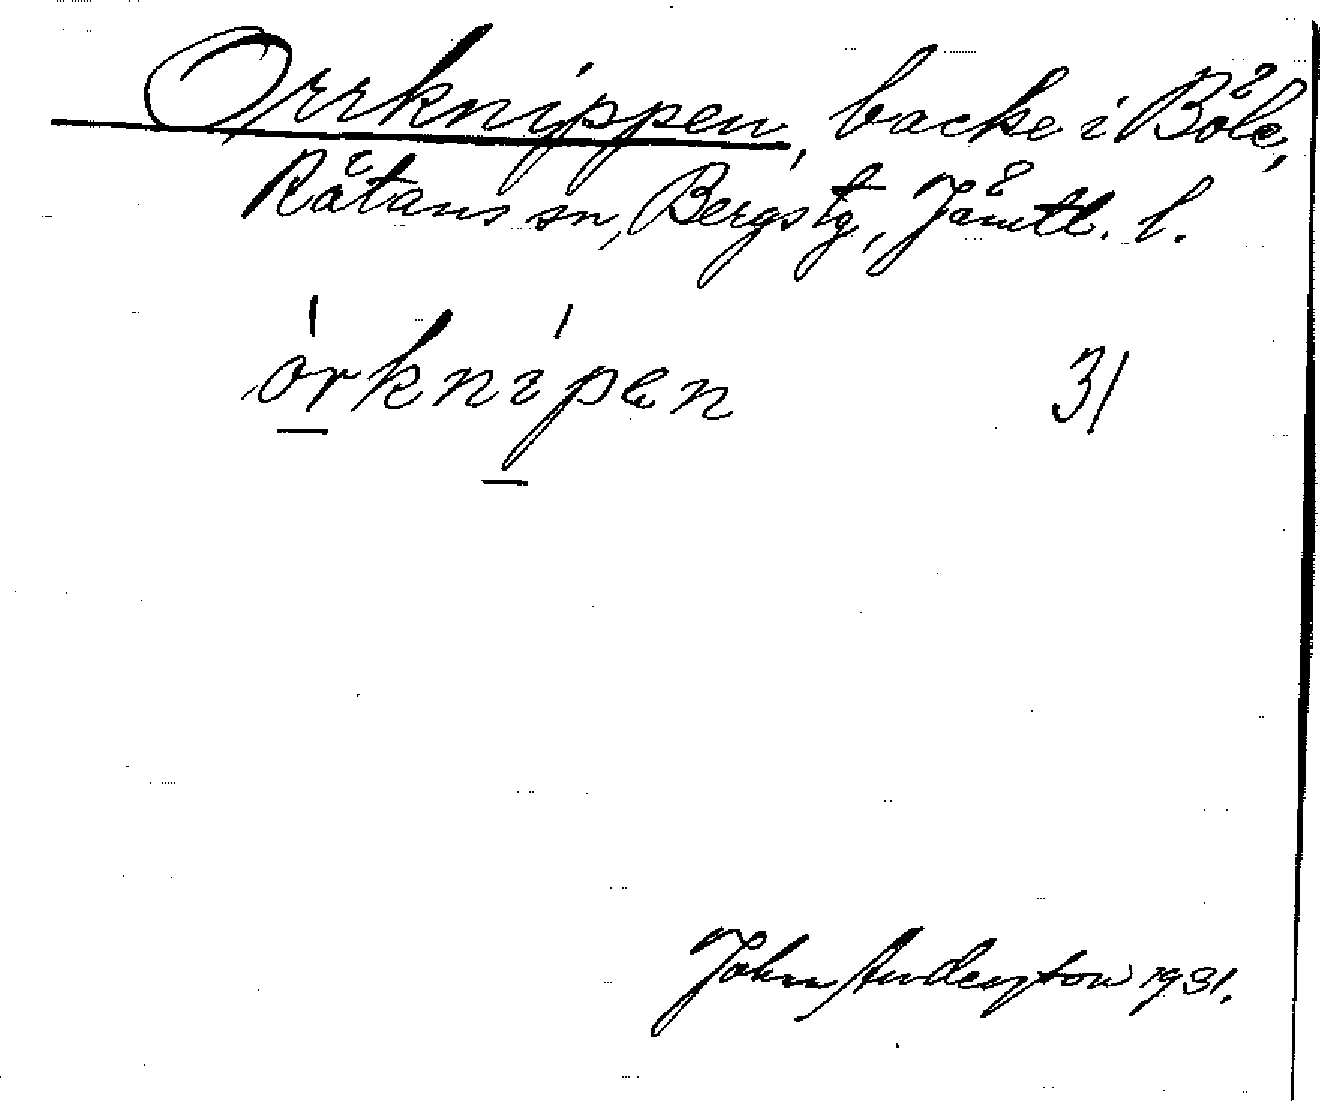 Orrknippen, backe i Böle,
Rätans sn, Bergs tg, Jämtl. l.
órknípen 31
John Anderson 1931.